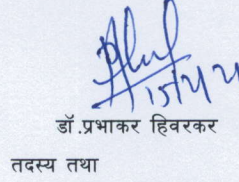 डॉ.प्रभाकर हिवरकर
तदस्य तथा